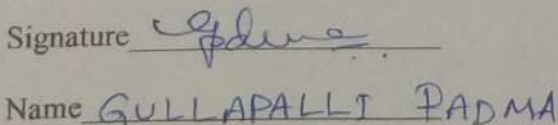 Signature
Name GULLAPALLI PADMA